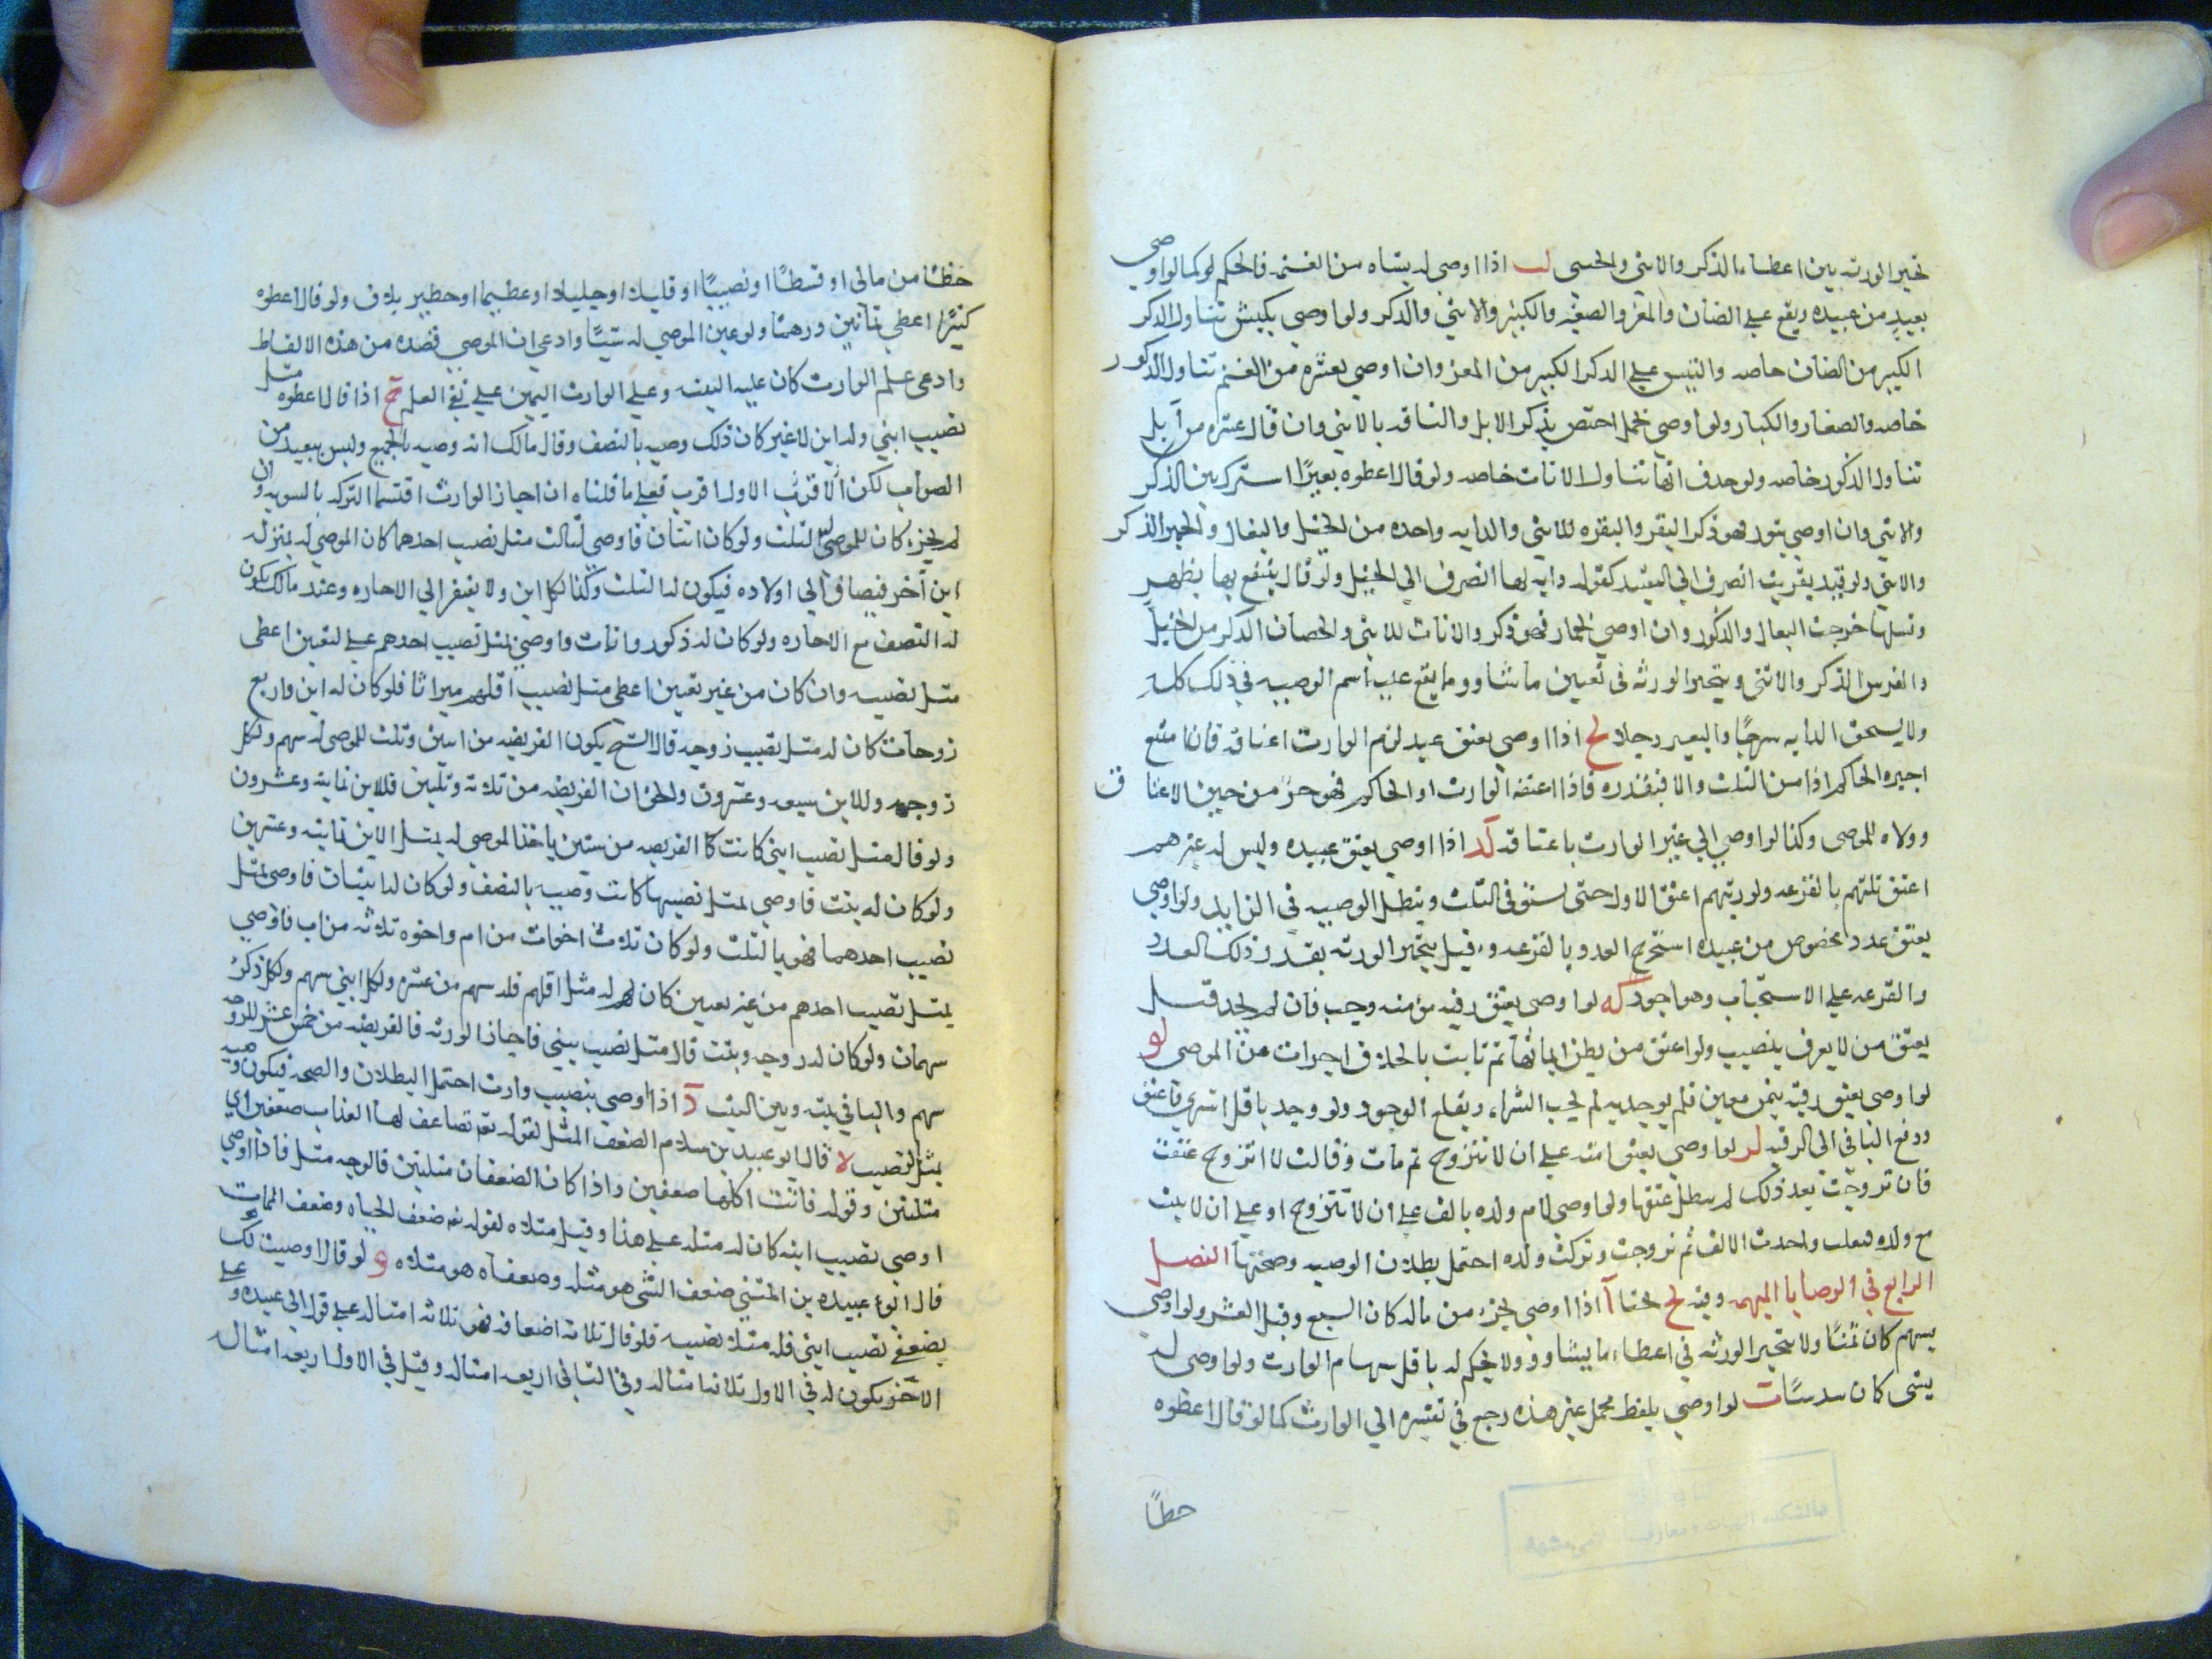 تخير الورثه بين اعطاء الذكر والانثي والخنثي لب اذا اوصي له بشاه من الغنم فالحكم لو كما لو اوصي
بعبيد من عبيده ويقع علي الضان والمعز والصغير والكبير والانثي والذكر ولو اوصي بكبش تناول الذكر
الكبير من الضان خاصه والتيس علي الذكر الكبير من المعز وان اوصي بعشره من الغنم تناول الذكور
خاصه والصغار والكبار ولو اوصي بجمل اختص بذكر الابل والناقه بالانثي وان قال عشره من ابل
تناول الذكور خاصه ولو حذف الها تناول الاناث خاصه ولو قال اعطوه بعيرًا استرك بين الذكر
والانثي وان اوصي بثور فهو ذكر البقر والبقره للانثي والدابه واحده من الخيل والبغال والحمير الذكر
والانثي ولو قيد بقرينه انصرف الي المقيد كقوله دابه لها انصرف الي الخيل ولو قال ينتفع بها بظهر
ونسلها خرجت البغال والذكور وان اوصي بحمار فهو ذكر والاتان للانثي والحصان الذكر من الخيل
والفرس الذكر والانثي ويتخير الورثه في تعيين ما شاوو مما يقع عليه اسم الوصيه في ذلك كله
ولا يستحق الدابه سرجًا والبعير رحلا لج اذا اوصي بعتق عبد لزم الوارث اعتاقه فان امتنع
اجبره الحاكم اذا من الثلث والا فبقدره فاذا اعتقه الوارث او الحاكم فهو حرّ من حين الاعتاق
وولاه للموصي وكذا لو اوصي الي غير الوارث باعتاقه لد اذا اوصي بعتق عبيده وليس له غيرهم
اعتق ثلثهم بالقرعه ولو رتبهم اعتق الاول حتي يستوفي الثلث وتبطل الوصيه في الزايد ولو اوصي
بعتق عدد مخصوص من عبيده استخرج العدد بالقرعه وقيل يتخير الورثه بقدر ذلك العدد
والقرعه علي الاستحباب وهو اجود له لو اوصي بعتق رقبه مؤمنه وجب فان لم يجد قيل
يعتق من لا يعرف بنصب ولو اعتق من يظن ايمانها ثم ثابت بالخلاف اجزات عن الموصي لو
لو اوصي بعتق رقبه بثمن معين فلم يوجد به لم يجب الشراء ويتوقع الوجود ولو وجد باقل اشتري فاعتق
ودفع الباقي الي الرقبه لر لو اوصي بعتق امته علي ان لا تتزوج ثم مات وقالت لا اتزوج عتقت
فان تزوجت بعد ذلك لم يبطل عتقها ولو اوصي لام ولده بالف علي ان لا تتزوج او علي ان لا يثبت
مع ولده ففعلت واخذت الالف ثم تزوجت وتركت ولده احتمل بطلان الوصيه وصحتها الفصل
الرابع في الوصايا المبهمه وفيه لج بحثا آ اذا اوصي بجزء من ماله كان السبع وقيل العشر ولو اوصي
بسهم كان ثمنًا ولا يتخير الورثه في اعطاء ما يشاوو ولا يحكم له باقل سهام الوارث ولو اوصي له
بشي كان سدسًا ب لو اوصي بلفظ مجمل غير هذه رجع في تفسيره الي الوارث كما لو قال اعطوه
حظا
حظا من مالي او قسطًا او نصيبًا او قليلا او جليلا او عظيما او خطير بلاف ولو قال اعطوه
كثيرًا اعطي ثمانين درهمًا ولو عين الموصي له شيئًا وادعي ان الموصي قصده من هذه الالفاظ
وادعي علم الوارث كان عليه البينه وعلي الوارث اليمين علي نفي العلم ج اذا قال اعطوه مثل
نصيب ابني وله ابن لا غير كان ذلك وصيه بالنصف وقال مالك انه وصيه بالجميع وليس ببعيد من
الصواب لكن الاقرب الاول اقرب فعلي ما قلناه ان اجاز الوارث اقتسما التركه بالسويه وان
لم يجز كان للموصي له الثلث ولو كان اثنان فاوصي لثالث مثل نصيب احدهما كان الموصي له بمنزله
ابن آخر فيضاف الي اولاده فيكون له الثلث وكذا لكل ابن ولا يفتقر الي الاجازه وعند مالك يكون
له النصف مع الاجازه ولو كان له ذكور واناث واوصي بمثل نصيب احدهم علي التعين اعطي
مثل نصيبه وان كان من غير تعين اعطي مثل نصيب اقلهم ميراثا فلو كان له ابن واربع
زوجات كان له مثل نصيب زوجه قال الشيخ يكون الفريضه من اثنين وثلث للموصي له سهم ولكل
زوجه وللابن سبعه وعشرون والحق ان الفريضه من ثلاثه وثلثين فللابن ثمانيه وعشرون
ولو قال مثل نصيب ابني كانت الفريضه من ستين ياخذ الموصي له بمثل الابن ثمانيه وعشرين
ولو كان له بنت فاوصي بمثل نصيبها كانت وصيه بالنصف ولو كان له بنتان فاوصي بمثل
نصيب احدهما فهو بالثلث ولو كان ثلاث اخوات من ام واخوه ثلاثه من اب فاوصي
بمثل نصيب احدهم من غير تعيين كان له مثل اقلهم فله سهم من عشره ولكل انثي سهم ولكل ذكر
سهمان ولو كان له زوجه وبنت قال مثل نصيب بنتي فاجاز الورثه فالفريضه من خمس عشر للزوجه
سهم والباقي بينه وبين البنت د اذا اوصي بنصيب وارث احتمل البطلان والصحه فيكون وصيه
بمثل نصيب لا قال ابو عبيد بن سلام الضعف المثل لقوله تع تضاعف لها العذاب ضعفين اي
مثلين وقوله فاتت اكلها ضعفين واذا كان الضعفان مثلين فالوجه مثل فاذا اوصي
اوصي بضعف نصيب ابنه كان له مثله علي هذا وقيل مثلاه لقوله تع ضعف الحياه وضعف الممات
قال ابو عبيده بن المثني ضعف الشي هو مثله وضعفاه هو مثلاه و لو قال اوصيت لك
بضعفي نصيب ابني فله مثلا نصيبه فلو قال ثلاثه اضعافه فهو ثلاثه امثاله علي قول ابي عبيده وعلي
الآخر يكون له في الاول ثلاثه امثاله وفي الثاني اربعه امثاله وقيل في الاول اربعه امثاله